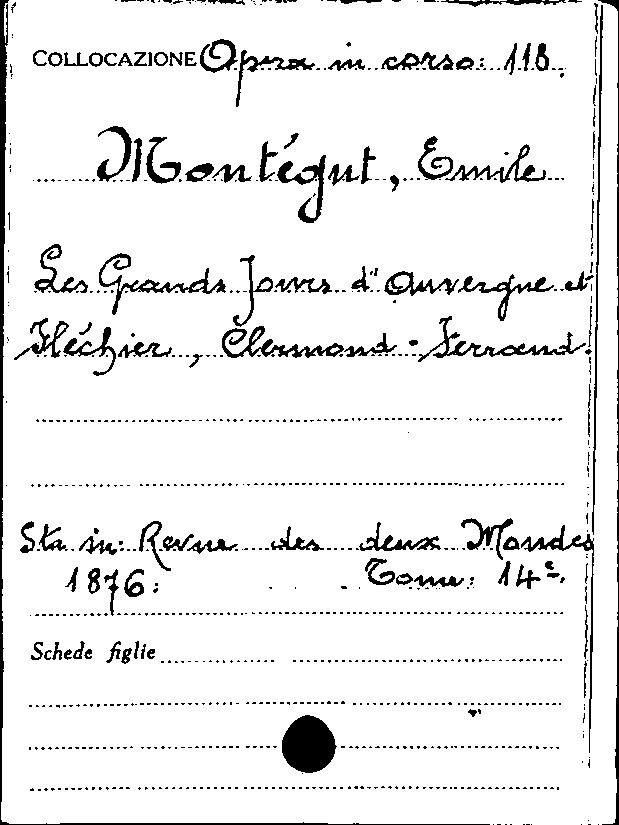 COLLOCAZIONE Opera in corso: 118.
Montégut, Emile
Les Grands Jours d'Auvergne et
Fléchier, Clermond-Ferrand.
Sta in: Revue des deux Mondes
1876: Tome: 14e.
Schede figlie